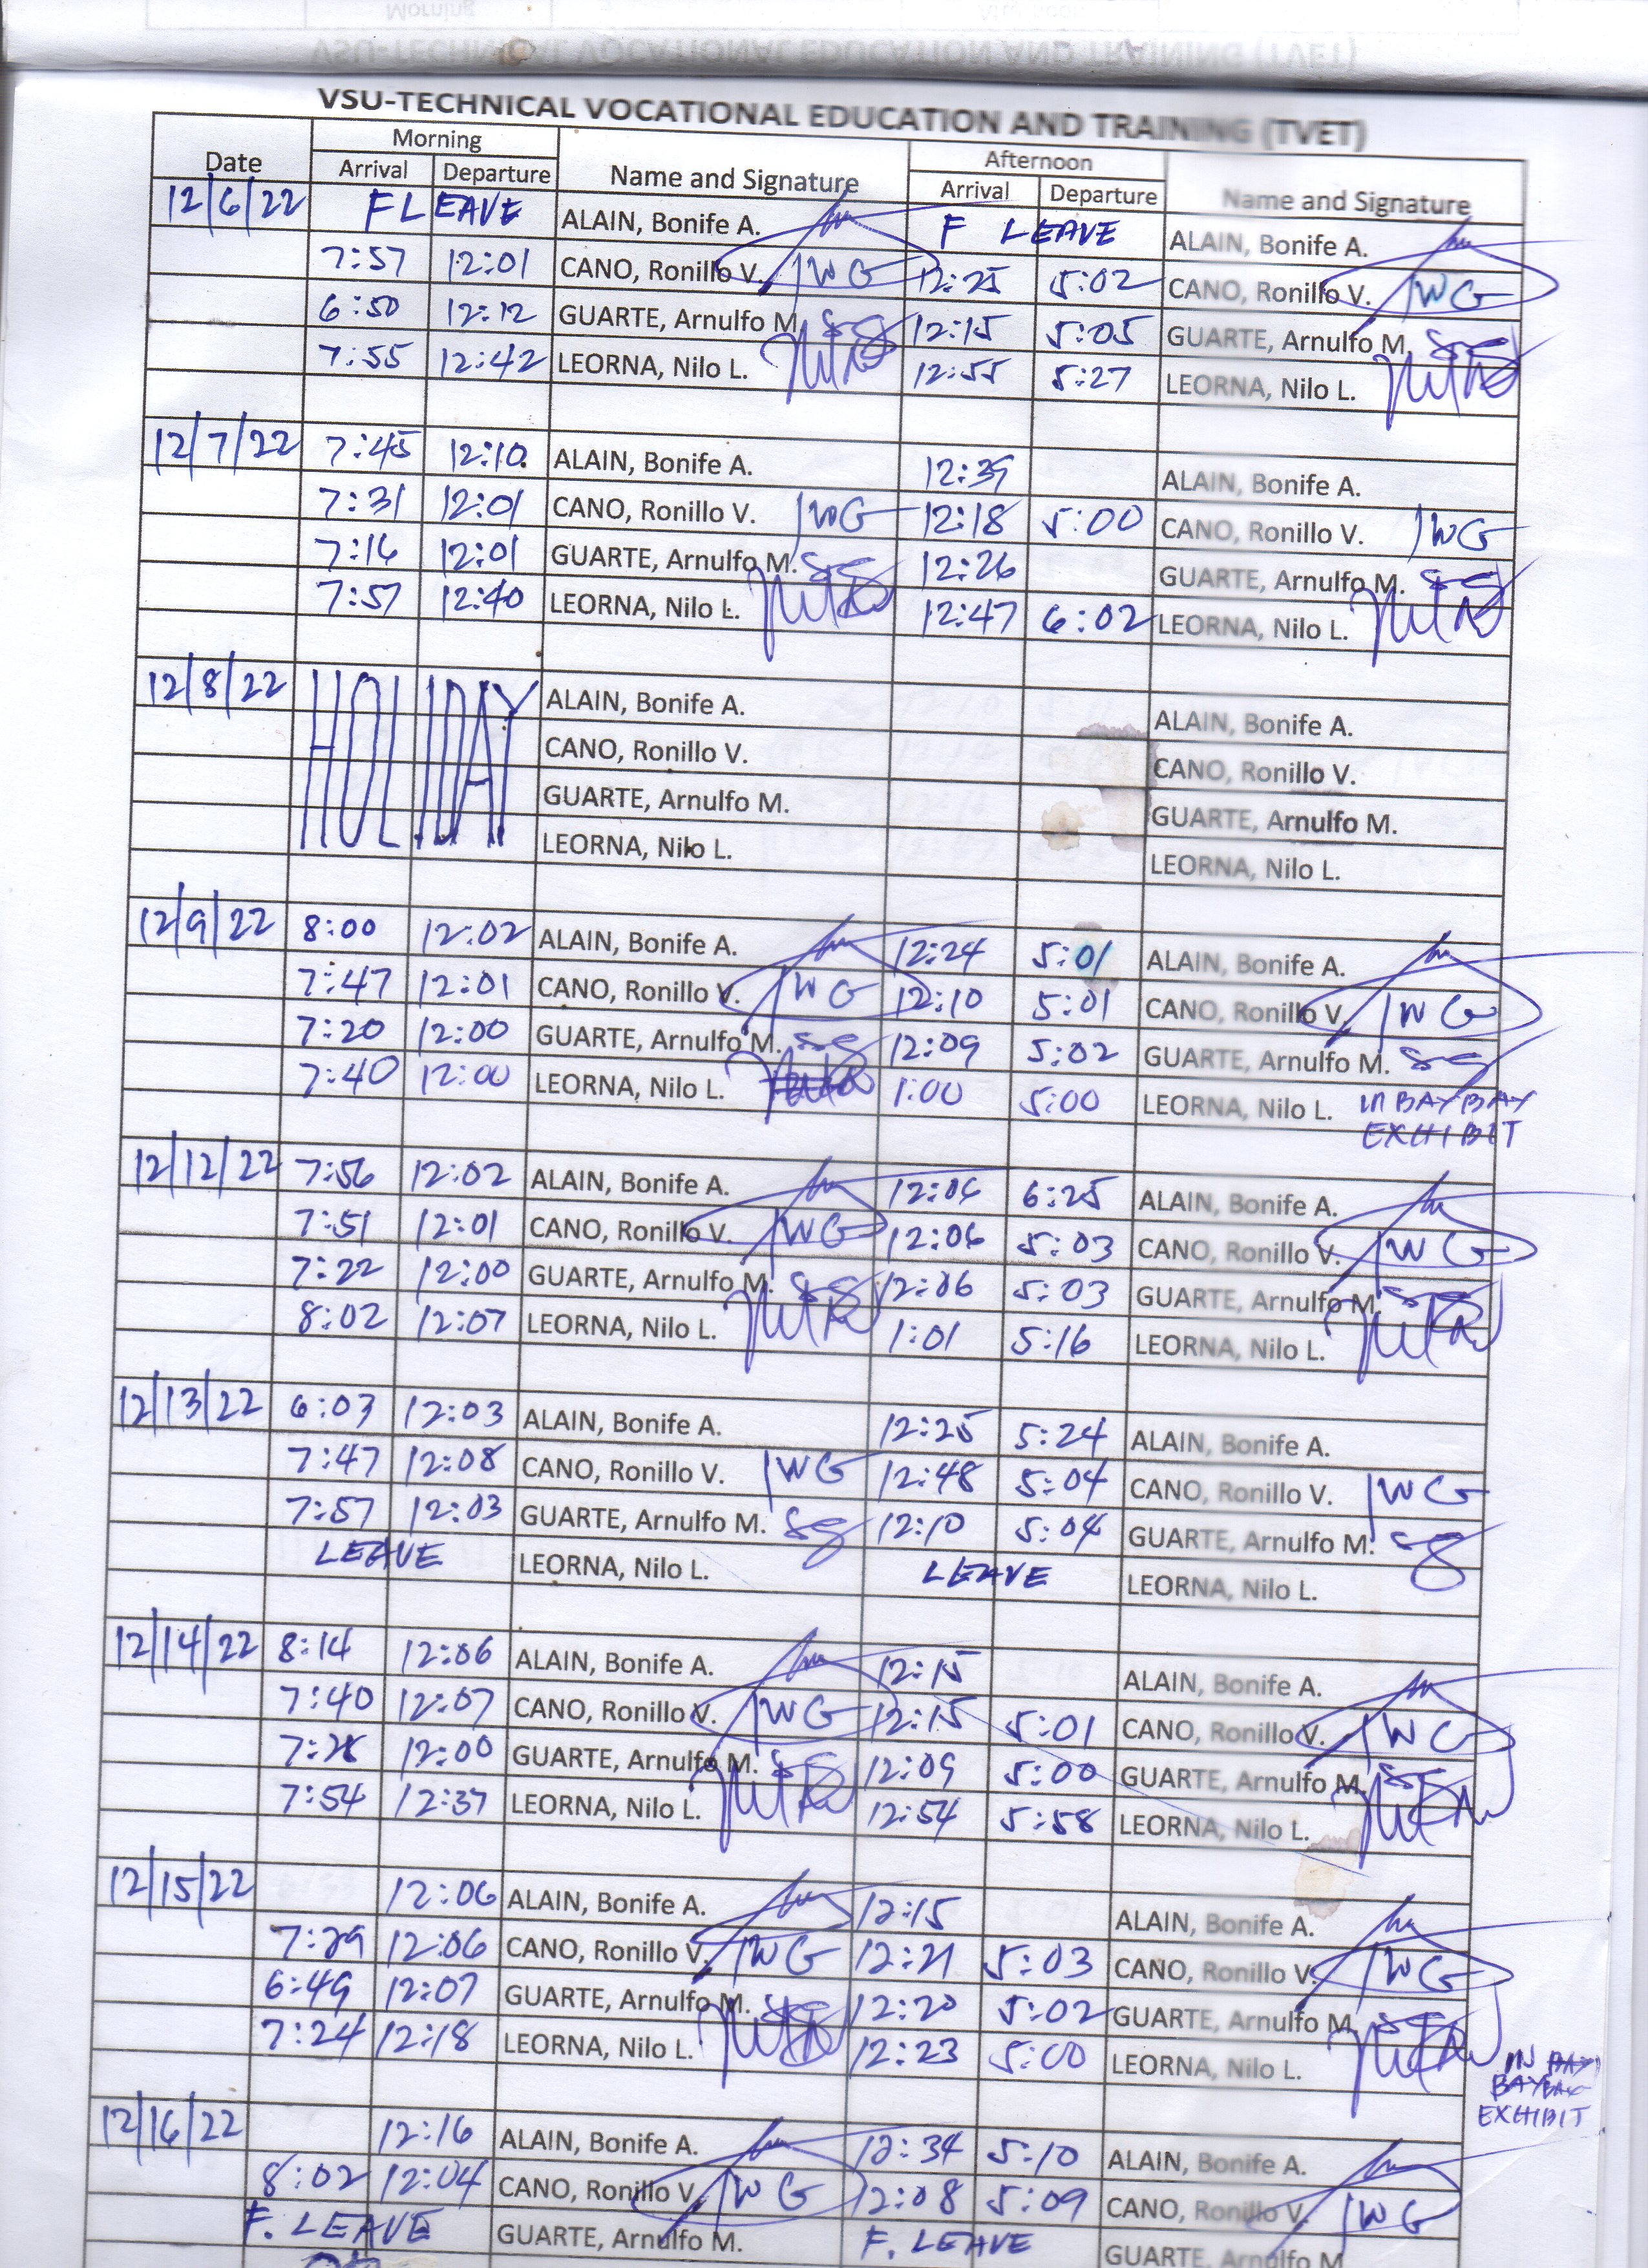 VSU-TECHNICAL VOCATIONAL EDUCATION AND TRAINING (TVET)
Morning Afternoon
Date Arrival Departure Name and Signature Arrival Departure Name and Signature
12/6/22 F LEAVE ALAIN, Bonife A. F LEAVE ALAIN, Bonife A.
7:57 12:01 CANO, Ronillo V. 12:25 5:02 CANO, Ronillo V.
6:50 12:12 GUARTE, Arnulfo M. 12:15 5:05 GUARTE, Arnulfo M.
7:55 12:42 LEORNA, Nilo L. 12:55 5:27 LEORNA, Nilo L.
12/7/22 7:45 12:10 ALAIN, Bonife A. 12:39 ALAIN, Bonife A.
7:31 12:01 CANO, Ronillo V. 12:18 5:00 CANO, Ronillo V.
7:16 12:01 GUARTE, Arnulfo M. 12:26 GUARTE, Arnulfo M.
7:57 12:40 LEORNA, Nilo L. 12:47 6:02 LEORNA, Nilo L.
12/8/22 HOLIDAY ALAIN, Bonife A. ALAIN, Bonife A.
CANO, Ronillo V. CANO, Ronillo V.
GUARTE, Arnulfo M. GUARTE, Arnulfo M.
LEORNA, Nilo L. LEORNA, Nilo L.
12/9/22 8:00 12:02 ALAIN, Bonife A. 12:24 5:01 ALAIN, Bonife A.
7:47 12:01 CANO, Ronillo V. 12:10 5:01 CANO, Ronillo V.
7:20 12:00 GUARTE, Arnulfo M. 12:09 5:02 GUARTE, Arnulfo M.
7:40 12:00 LEORNA, Nilo L. 1:00 5:00 LEORNA, Nilo L. IN BAYBAY
EXHIBIT
12/12/22 7:56 12:02 ALAIN, Bonife A. 12:06 6:25 ALAIN, Bonife A.
7:51 12:01 CANO, Ronillo V. 12:06 5:03 CANO, Ronillo V.
7:22 12:00 GUARTE, Arnulfo M. 12:06 5:03 GUARTE, Arnulfo M.
8:02 12:07 LEORNA, Nilo L. 1:01 5:16 LEORNA, Nilo L.
12/13/22 6:03 12:03 ALAIN, Bonife A. 12:25 5:24 ALAIN, Bonife A.
7:47 12:08 CANO, Ronillo V. 12:48 5:04 CANO, Ronillo V.
7:57 12:03 GUARTE, Arnulfo M. 12:10 5:04 GUARTE, Arnulfo M.
LEAVE LEORNA, Nilo L. LEAVE LEORNA, Nilo L.
12/14/22 8:14 12:06 ALAIN, Bonife A. 12:15 ALAIN, Bonife A.
7:40 12:07 CANO, Ronillo V. 12:15 5:01 CANO, Ronillo V.
12:00 GUARTE, Arnulfo M. 12:09 5:00 GUARTE, Arnulfo M.
7:54 12:37 LEORNA, Nilo L. 12:54 5:58 LEORNA, Nilo L.
12/15/22 12:06 ALAIN, Bonife A. 12:15 ALAIN, Bonife A.
7:29 12:06 CANO, Ronillo V. 12:21 5:03 CANO, Ronillo V.
6:49 12:07 GUARTE, Arnulfo M. 12:20 5:02 GUARTE, Arnulfo M.
7:24 12:18 LEORNA, Nilo L. 12:23 5:00 LEORNA, Nilo L. IN
BAYBAY
EXHIBIT
12/16/22 12:16 ALAIN, Bonife A. 12:34 5:10 ALAIN, Bonife A.
8:02 12:04 CANO, Ronillo V. 12:08 5:09 CANO, Ronillo V.
F. LEAVE GUARTE, Arnulfo M. F. LEAVE GUARTE, Arnulfo M